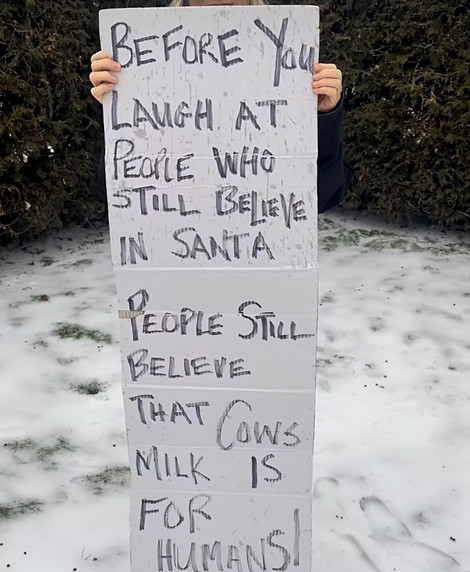 BEFORE You
LAUGH AT
PEOPLE WHO
STILL BELIEVE
IN SANTA
PEOPLE STILL
BELIEVE
THAT COWS
MILK IS
FOR
HUMANS!